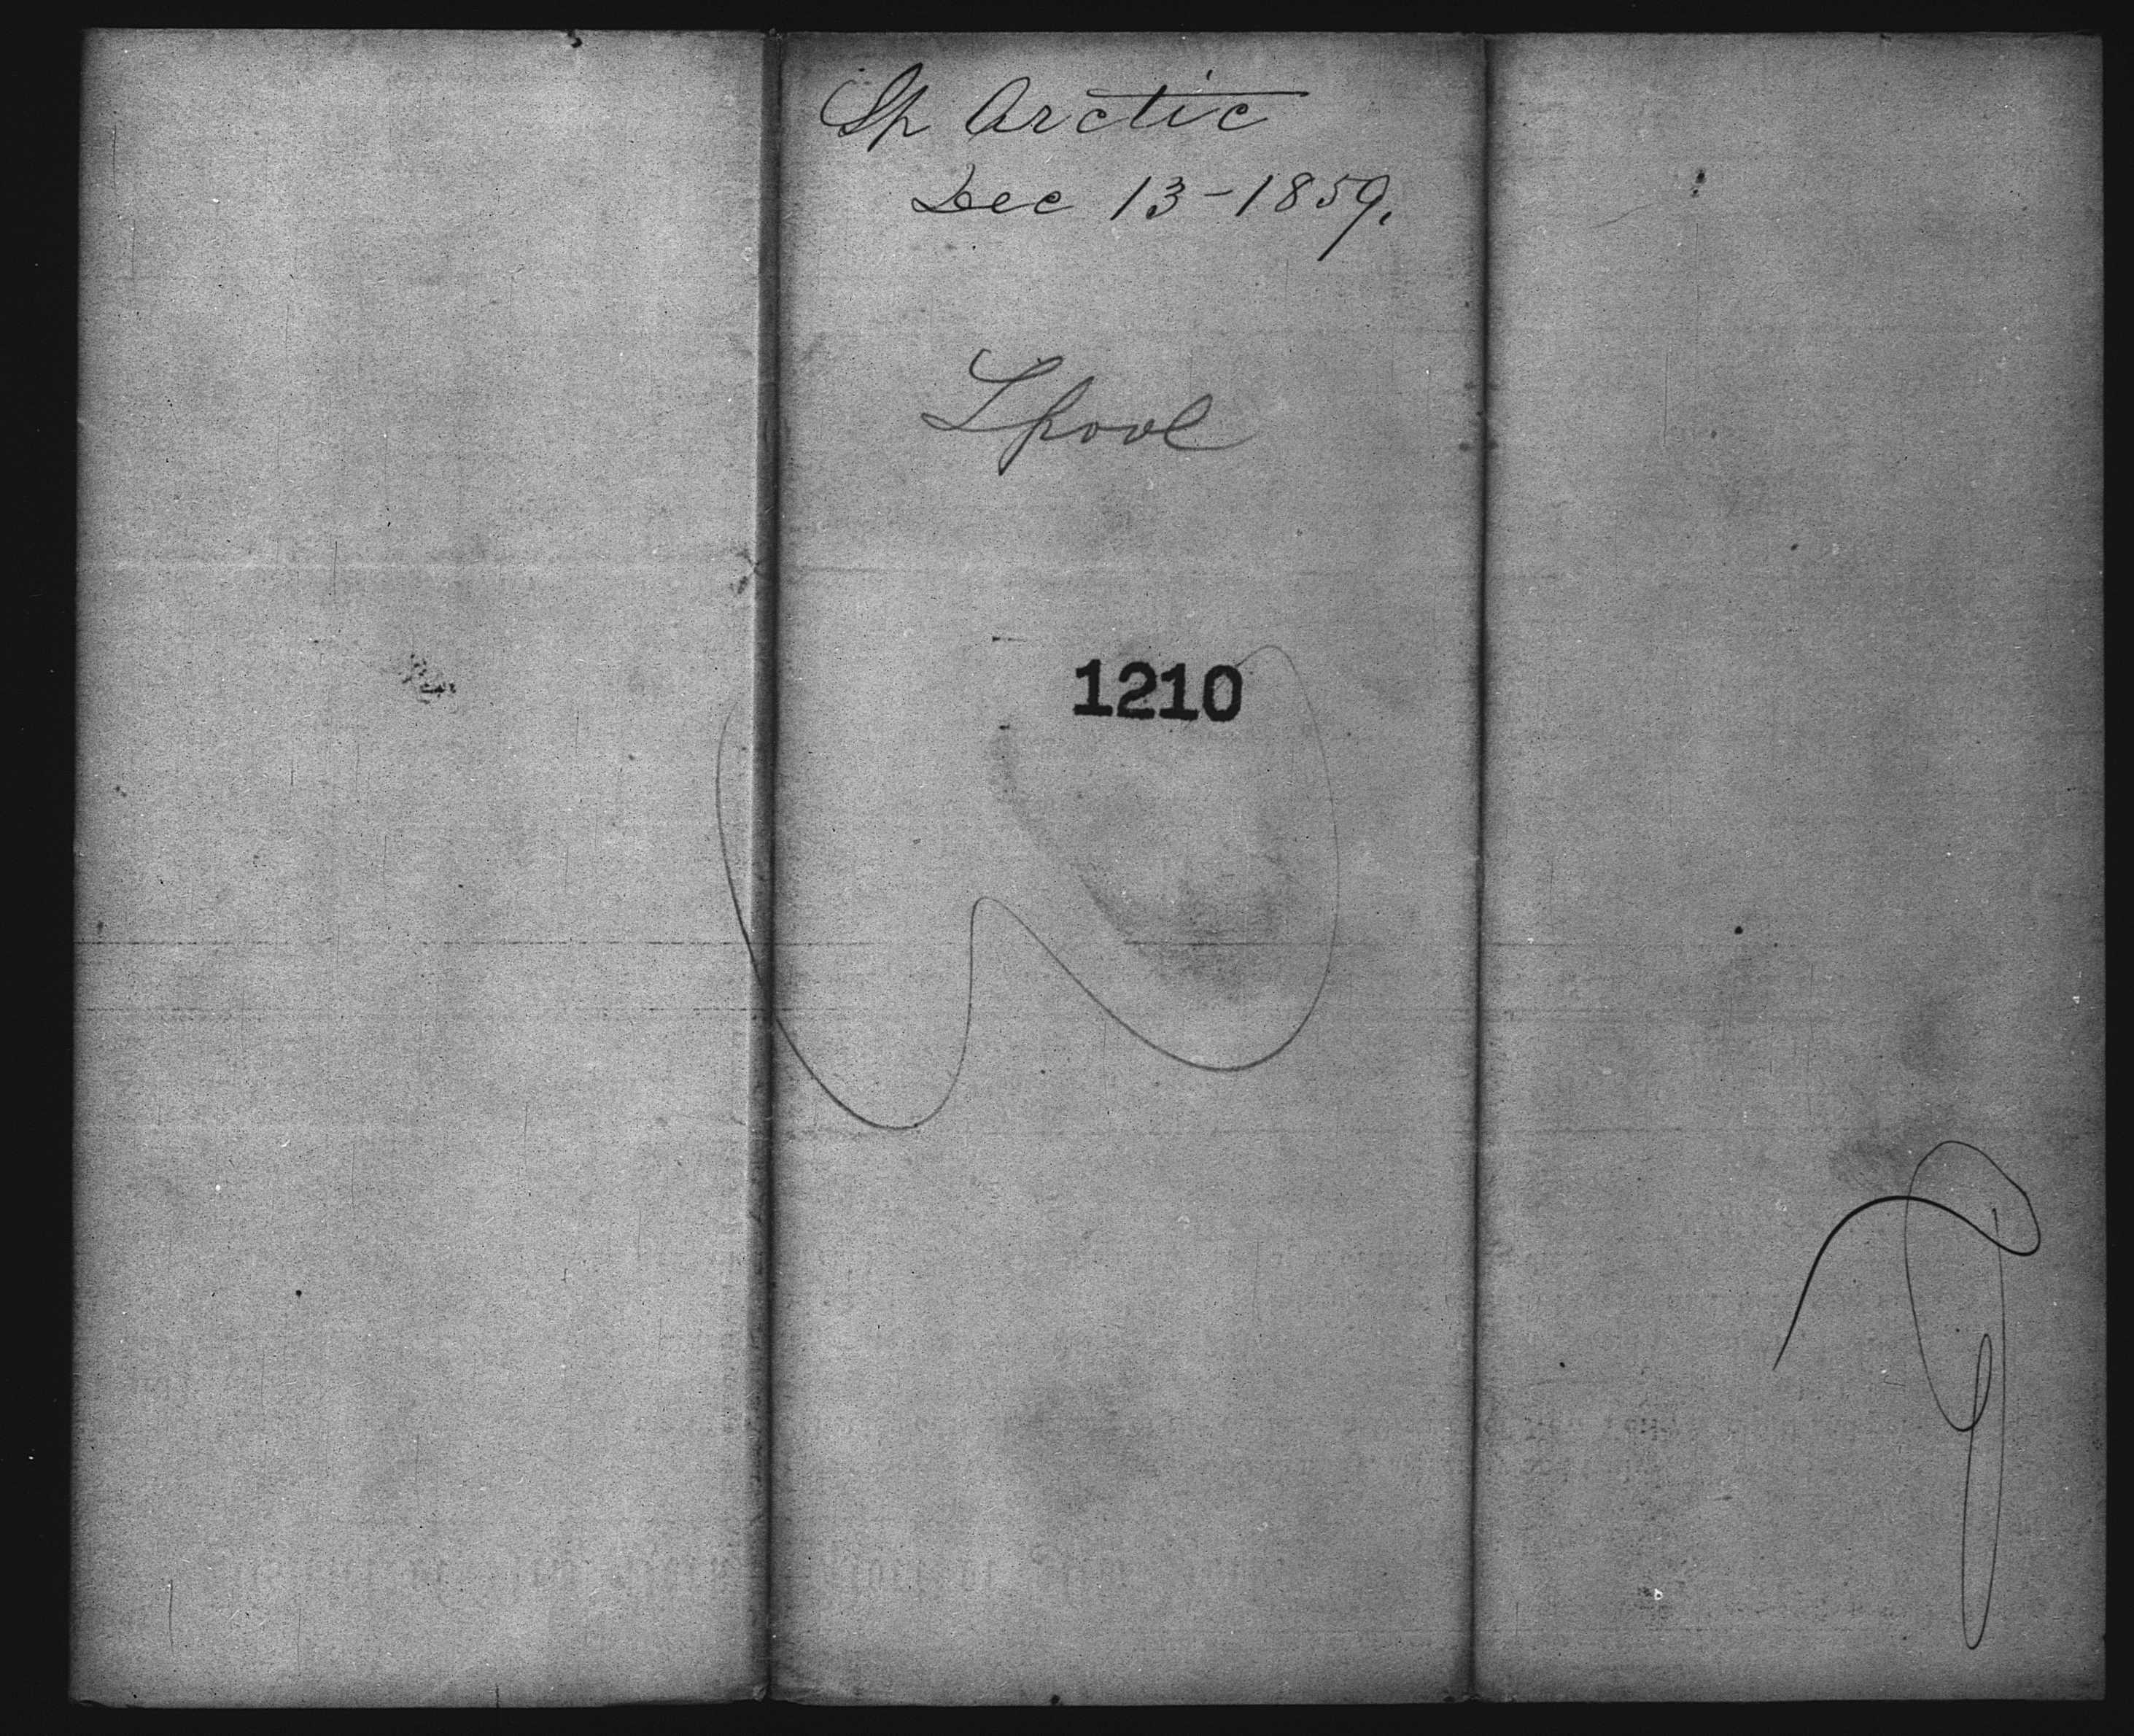 Sp Arctic
Dec 13-1859.
Lpool
1210